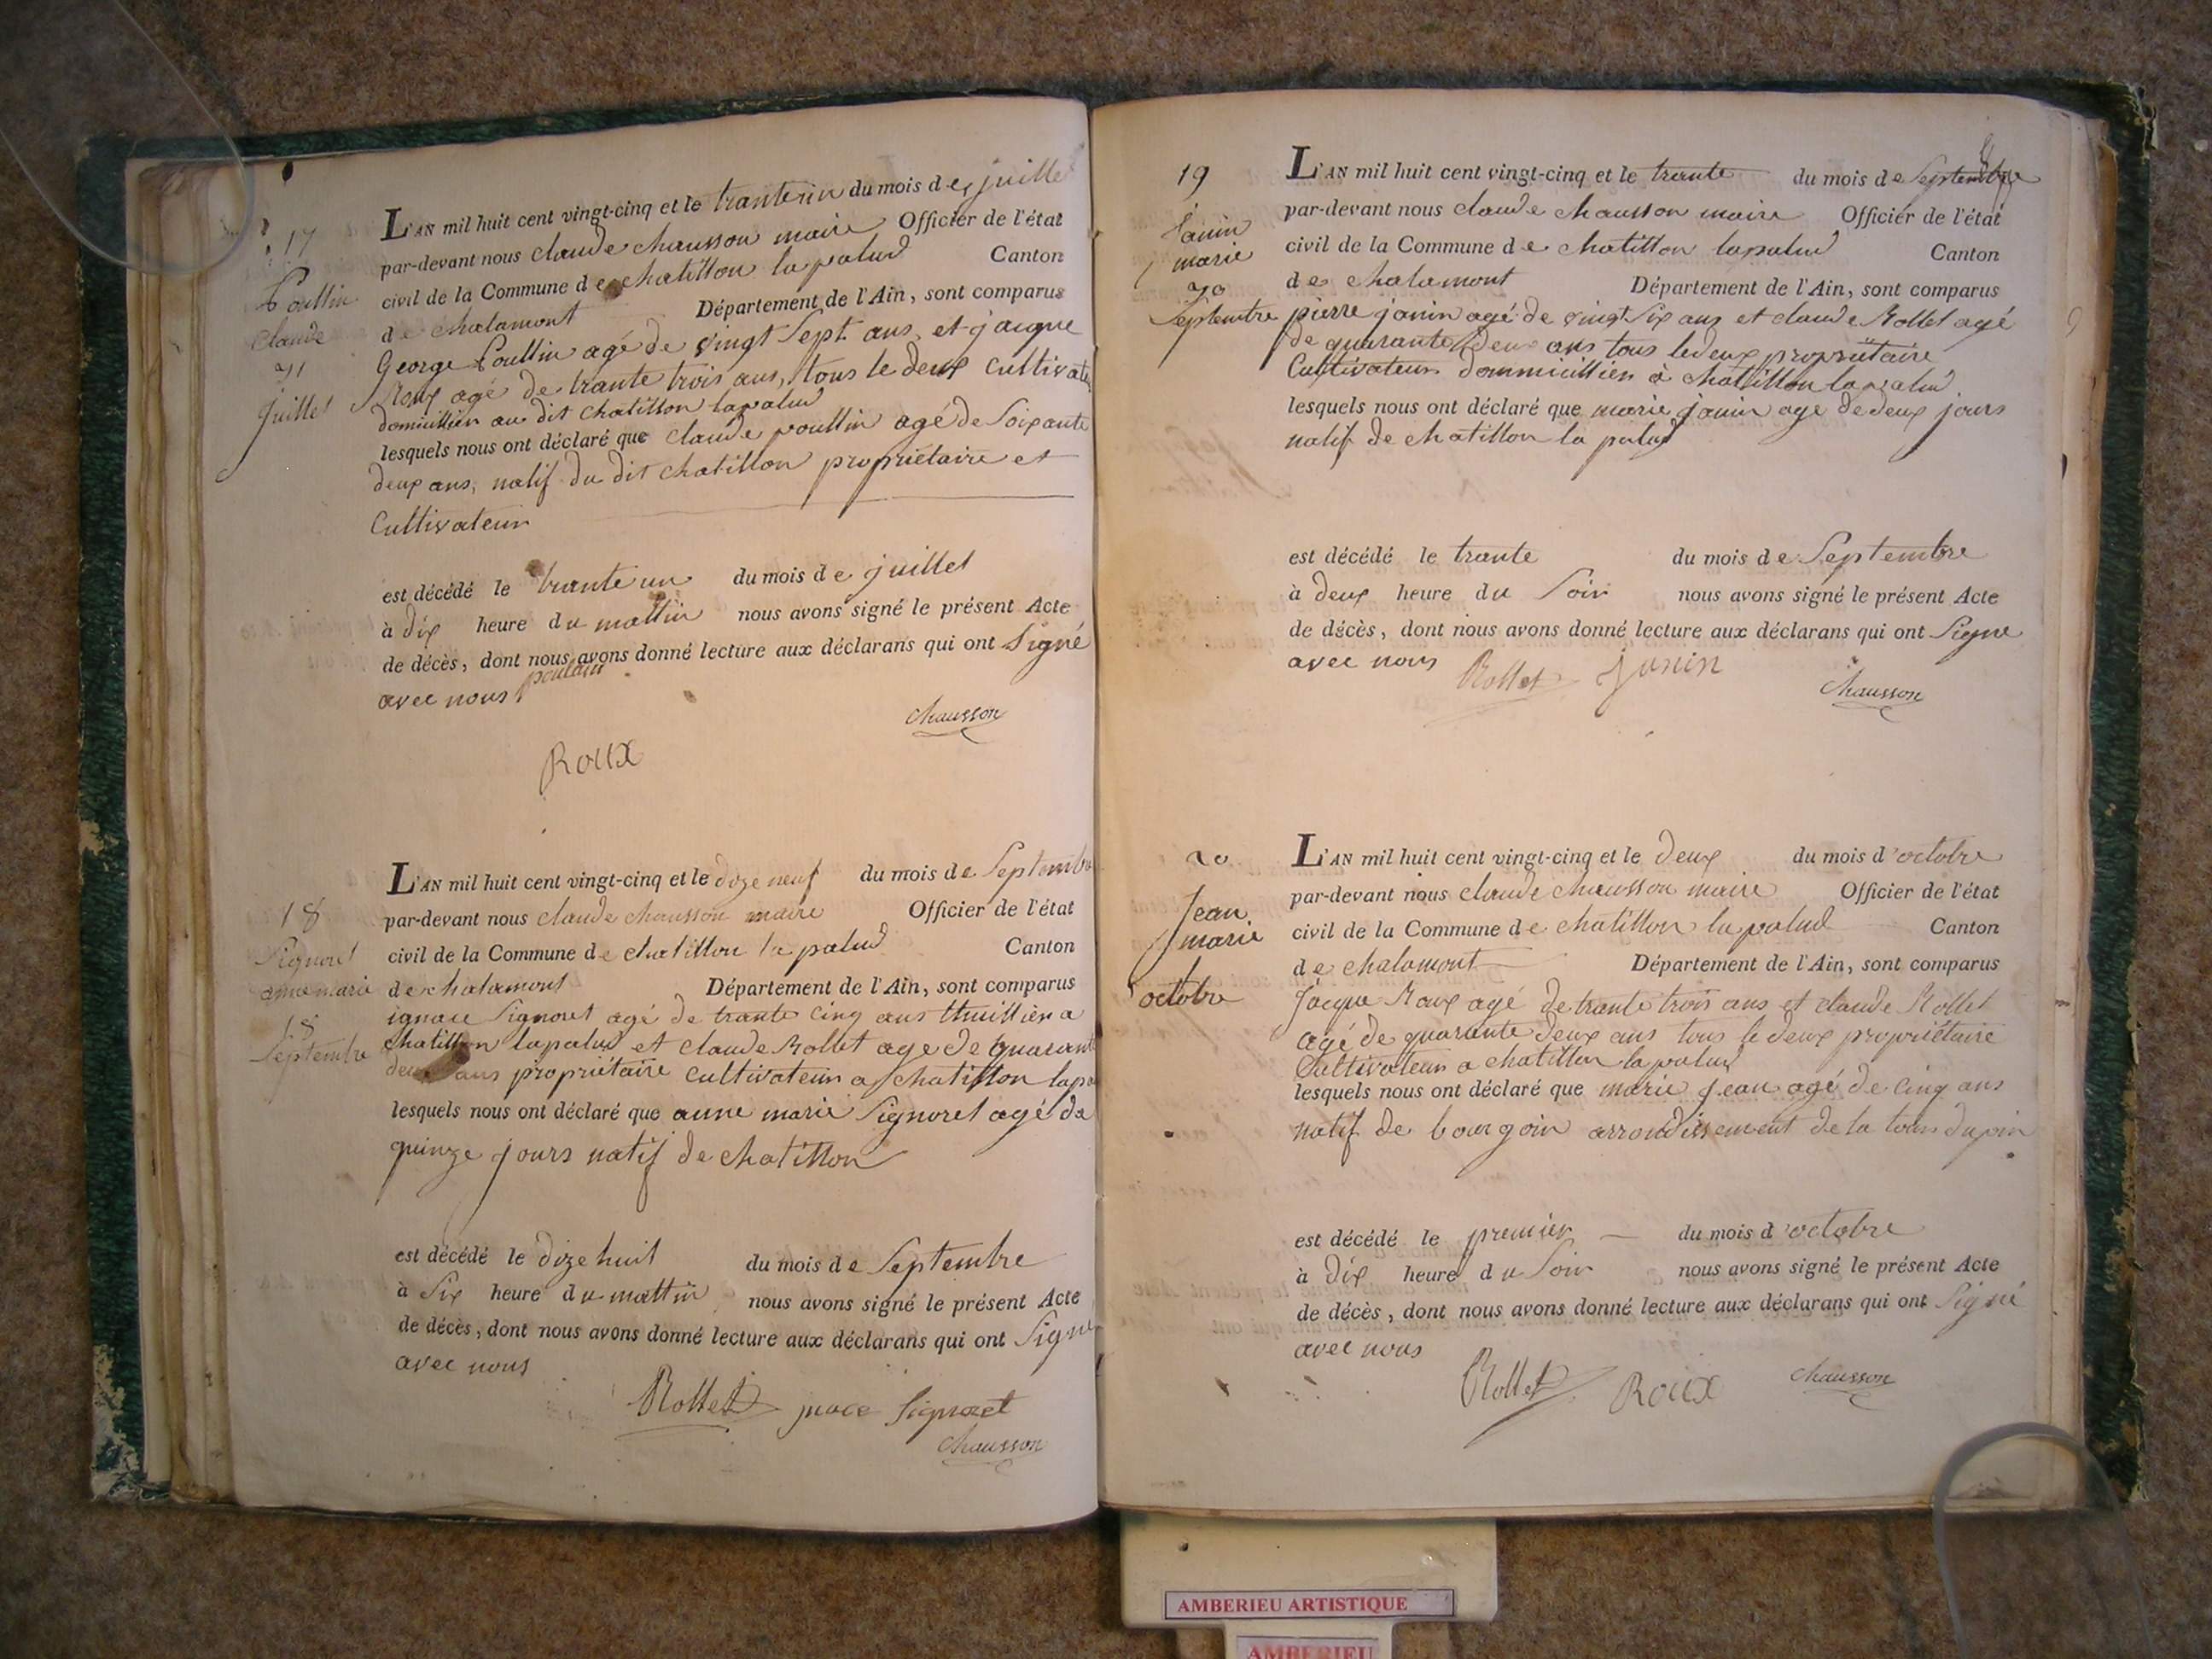 17
Poullin
Claude
31
juillet
L'AN mil huit cent vingt-cinq et le tranteun du mois de juillet
par-devant nous claude chausson maire Officier de l'état
civil de la Commune de chatillon la palud Canton
de chalamont Département de l'Ain, sont comparus
George Poullin agé de vingt Sept ans et jacque
Roux agé de trante trois ans, tous le deux Cultivate
domicillien au dit chatillon lapalud
lesquels nous ont déclaré que claude poullin agé de Soixante
deux ans, natif du dit chatillon propriétaire et
Cultivateur
est décédé le trante un du mois de juillet
à dix heure du mattin nous avons signé le présent Acte
de décès, dont nous avons donné lecture aux déclarans qui ont Signé
avec nous
chausson
Roux
18
Signoret
anne marie
18
Septembre
L'AN mil huit cent vingt-cinq et le dize neuf du mois de Septembre
par-devant nous claude chausson maire Officier de l'état
civil de la Commune de chatillon la palud Canton
de chalamont Département de l'Ain, sont comparus
ignace Signoret agé de trante cinq ans thuillier a
chatillon lapalud et claude Rollet age de quarante
deux ans propriétaire cultivateur a chatillon lapa
lesquels nous ont déclaré que anne marie Signoret agé de
quinze jours natif de chatillon
est décédé le dize huit du mois de Septembre
à Six heure du mattin nous avons signé le présent Acte
de décès, dont nous avons donné lecture aux déclarans qui ont Signé
avec nous
Rollet Signoret
chausson
19
Janin
marie
30
Septembre
L'AN mil huit cent vingt-cinq et le trante du mois de Septembre
par-devant nous claude chausson maire Officier de l'état
civil de la Commune de chatillon lapalud Canton
de chalamont Département de l'Ain, sont comparus
pierre janin agé de vingt Six ans et claude Rollet agé
de quarante deux ans tous ledeux propriétaire
Cultivateur dommicillien à chatillon lapalud
lesquels nous ont déclaré que marie janin age de deux jours
natif de chatillon la palud
est décédé le trante du mois de Septembre
à deux heure du Soir nous avons signé le présent Acte
de décès, dont nous avons donné lecture aux déclarans qui ont Signe
avec nous
Rollet janin
chausson
20
Jean
marie
octobre
L'AN mil huit cent vingt-cinq et le deux du mois d'octobre
par-devant nous claude chausson maire Officier de l'état
civil de la Commune de chatillon la palud Canton
de chalamont Département de l'Ain, sont comparus
Jacque Roux agé de trante trois ans et claude Rollet
agé de quarante deux ans tous le deux propriétaire
Cultivateur a chatillon la palud
lesquels nous ont déclaré que marie Jean agé de cinq ans
natif de bourgoin arrondissement de la tour dupin
est décédé le premier du mois d'octobre
à dix heure du Soir nous avons signé le présent Acte
de décès, dont nous avons donné lecture aux déclarans qui ont Signé
avec nous
Rollet Roux chausson
AMBERIEU ARTISTIQUE
AMBERIEU